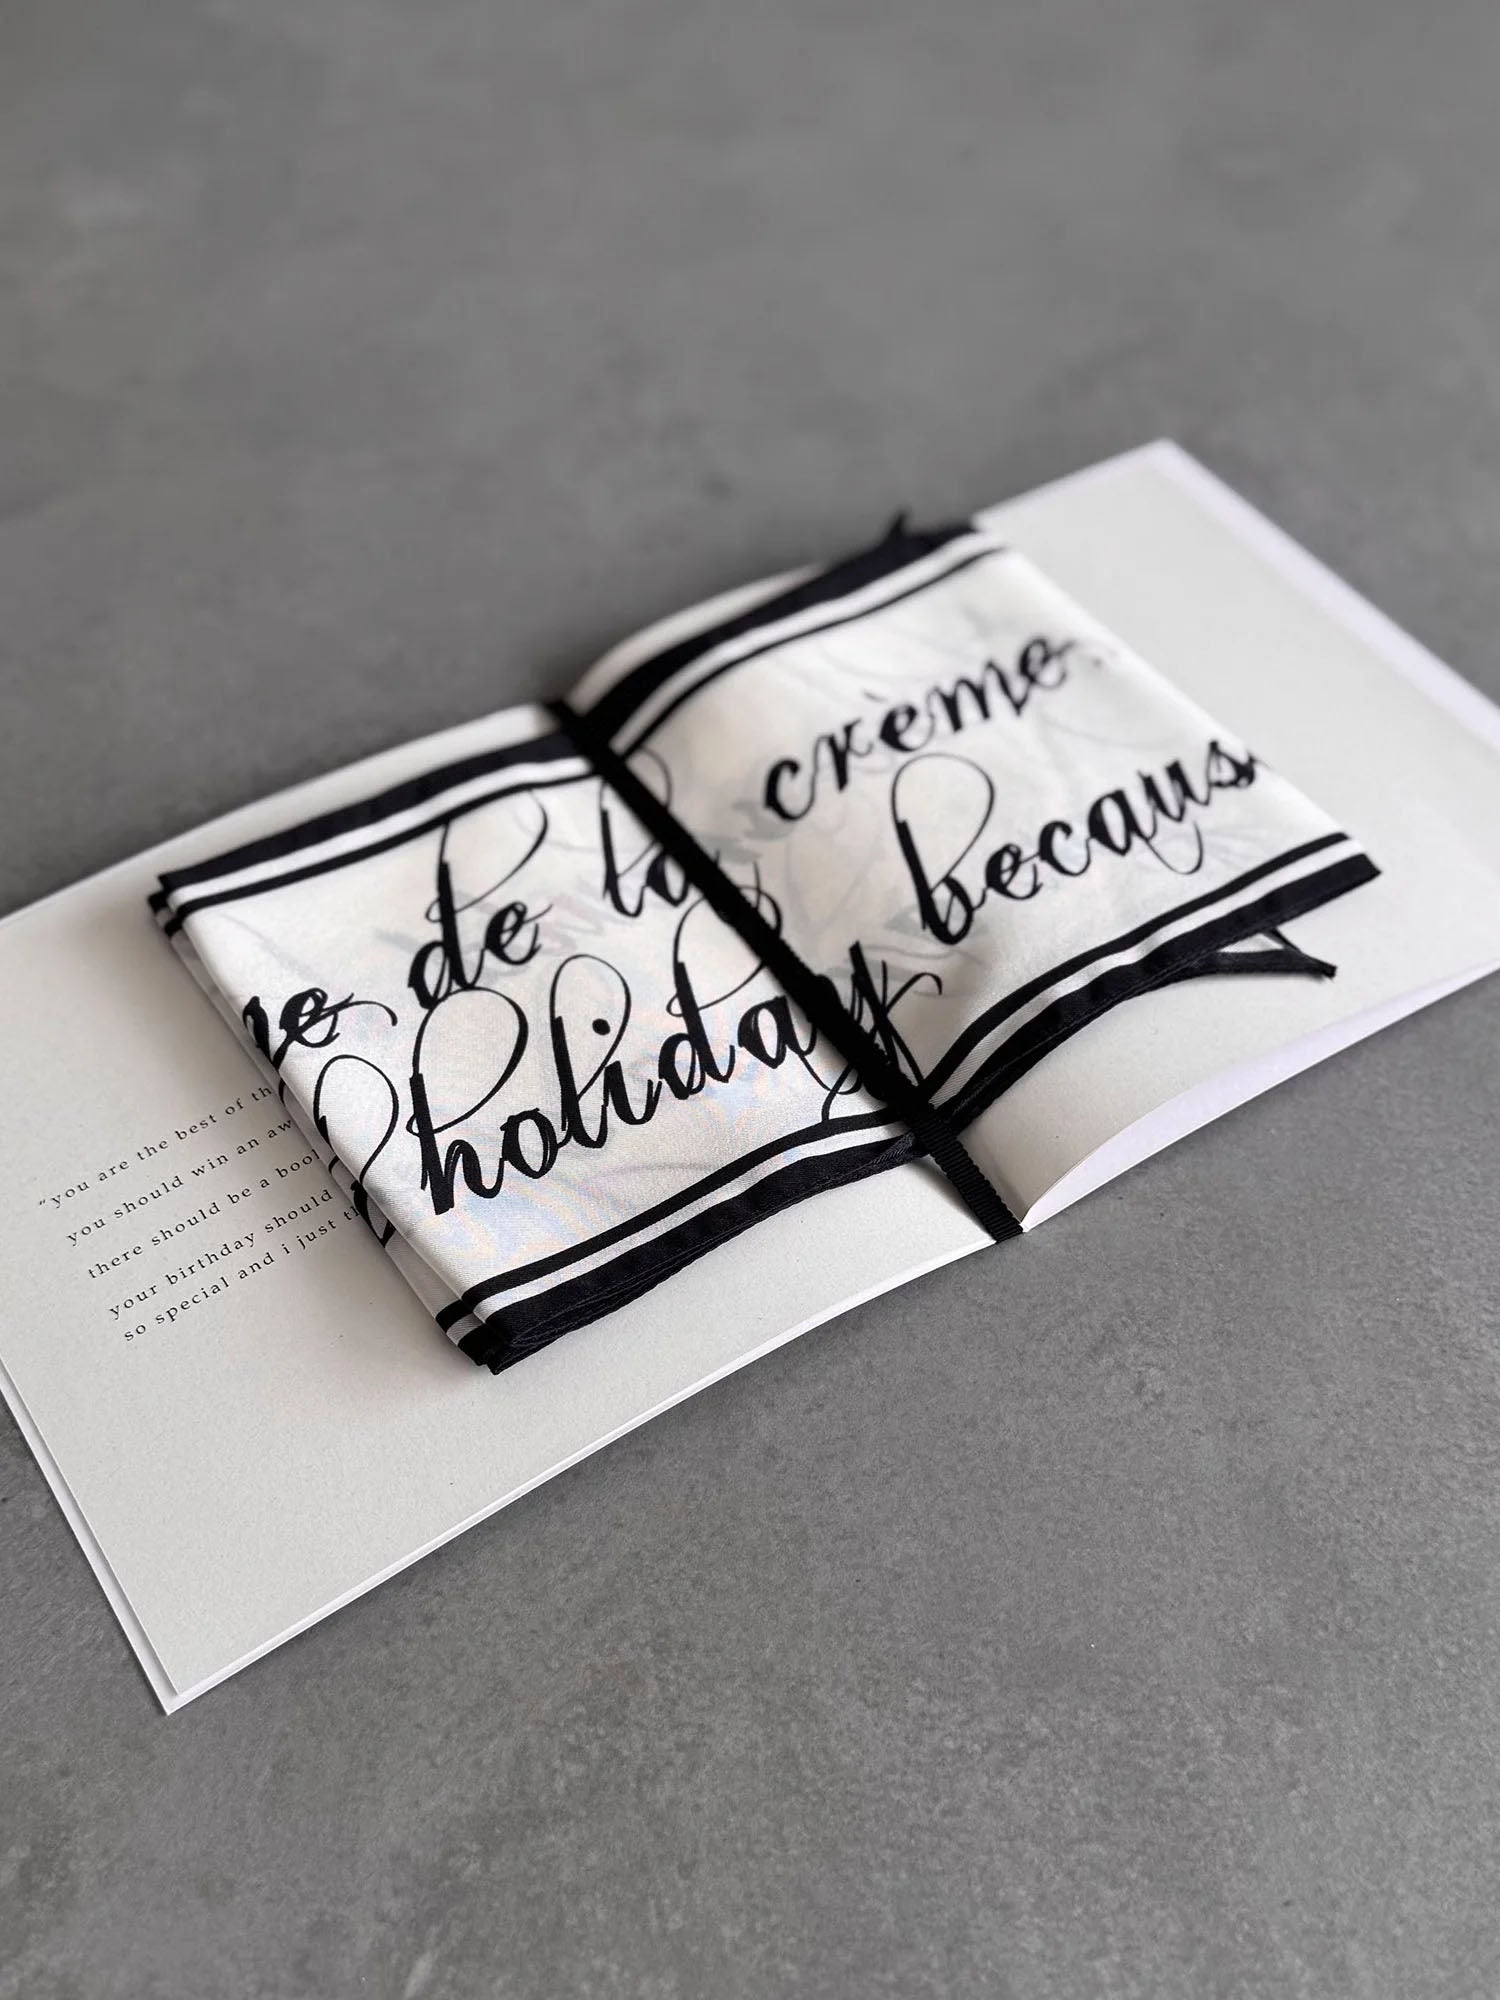 de la crème
holiday because
“you are the best of
you should win an
there should be a
your birthday should
so special and i just